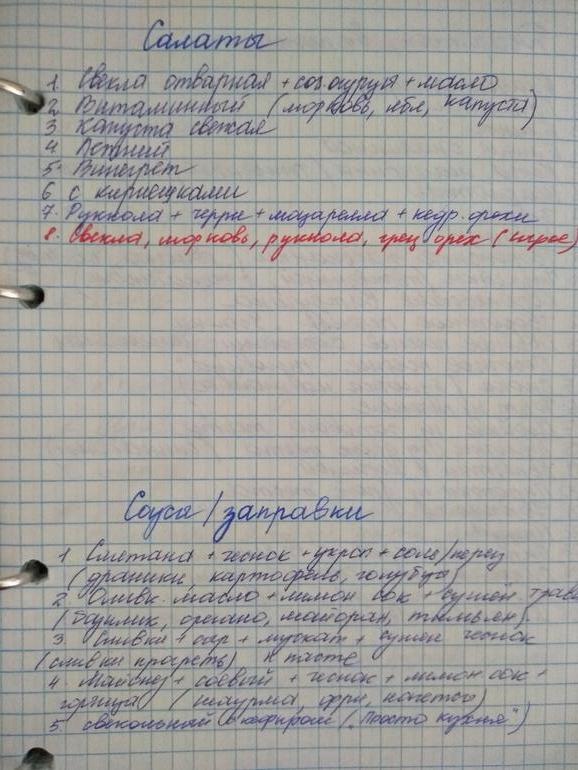 Салаты
1. Свекла отварная + сол.огурцы + масло
2. Витаминный (морковь, ябл, капуста)
3 Капуста свежая
4 Летний
5. Винегрет
6 с кириешками
7. Руккола + черри + моцарелла + кедр. орехи
8. Свекла, морковь, руккола, грец орех
Соуса/заправки
1 Сметана + чеснок + укроп + соль/перец
(драники, картофель, голубцы)
2 Оливк. масло + лимон сок + сушён. трава
(базилик, орегано, майоран, тимьян)
3. Сливки + сыр + мускат + сушен чеснок
(сливки прогреть) к пасте
4. Майонез + соевый + чеснок + лимон сок +
горчица (шаурма, фри, нагетсы)
5. свекольный с кефиром ("Просто кухня")